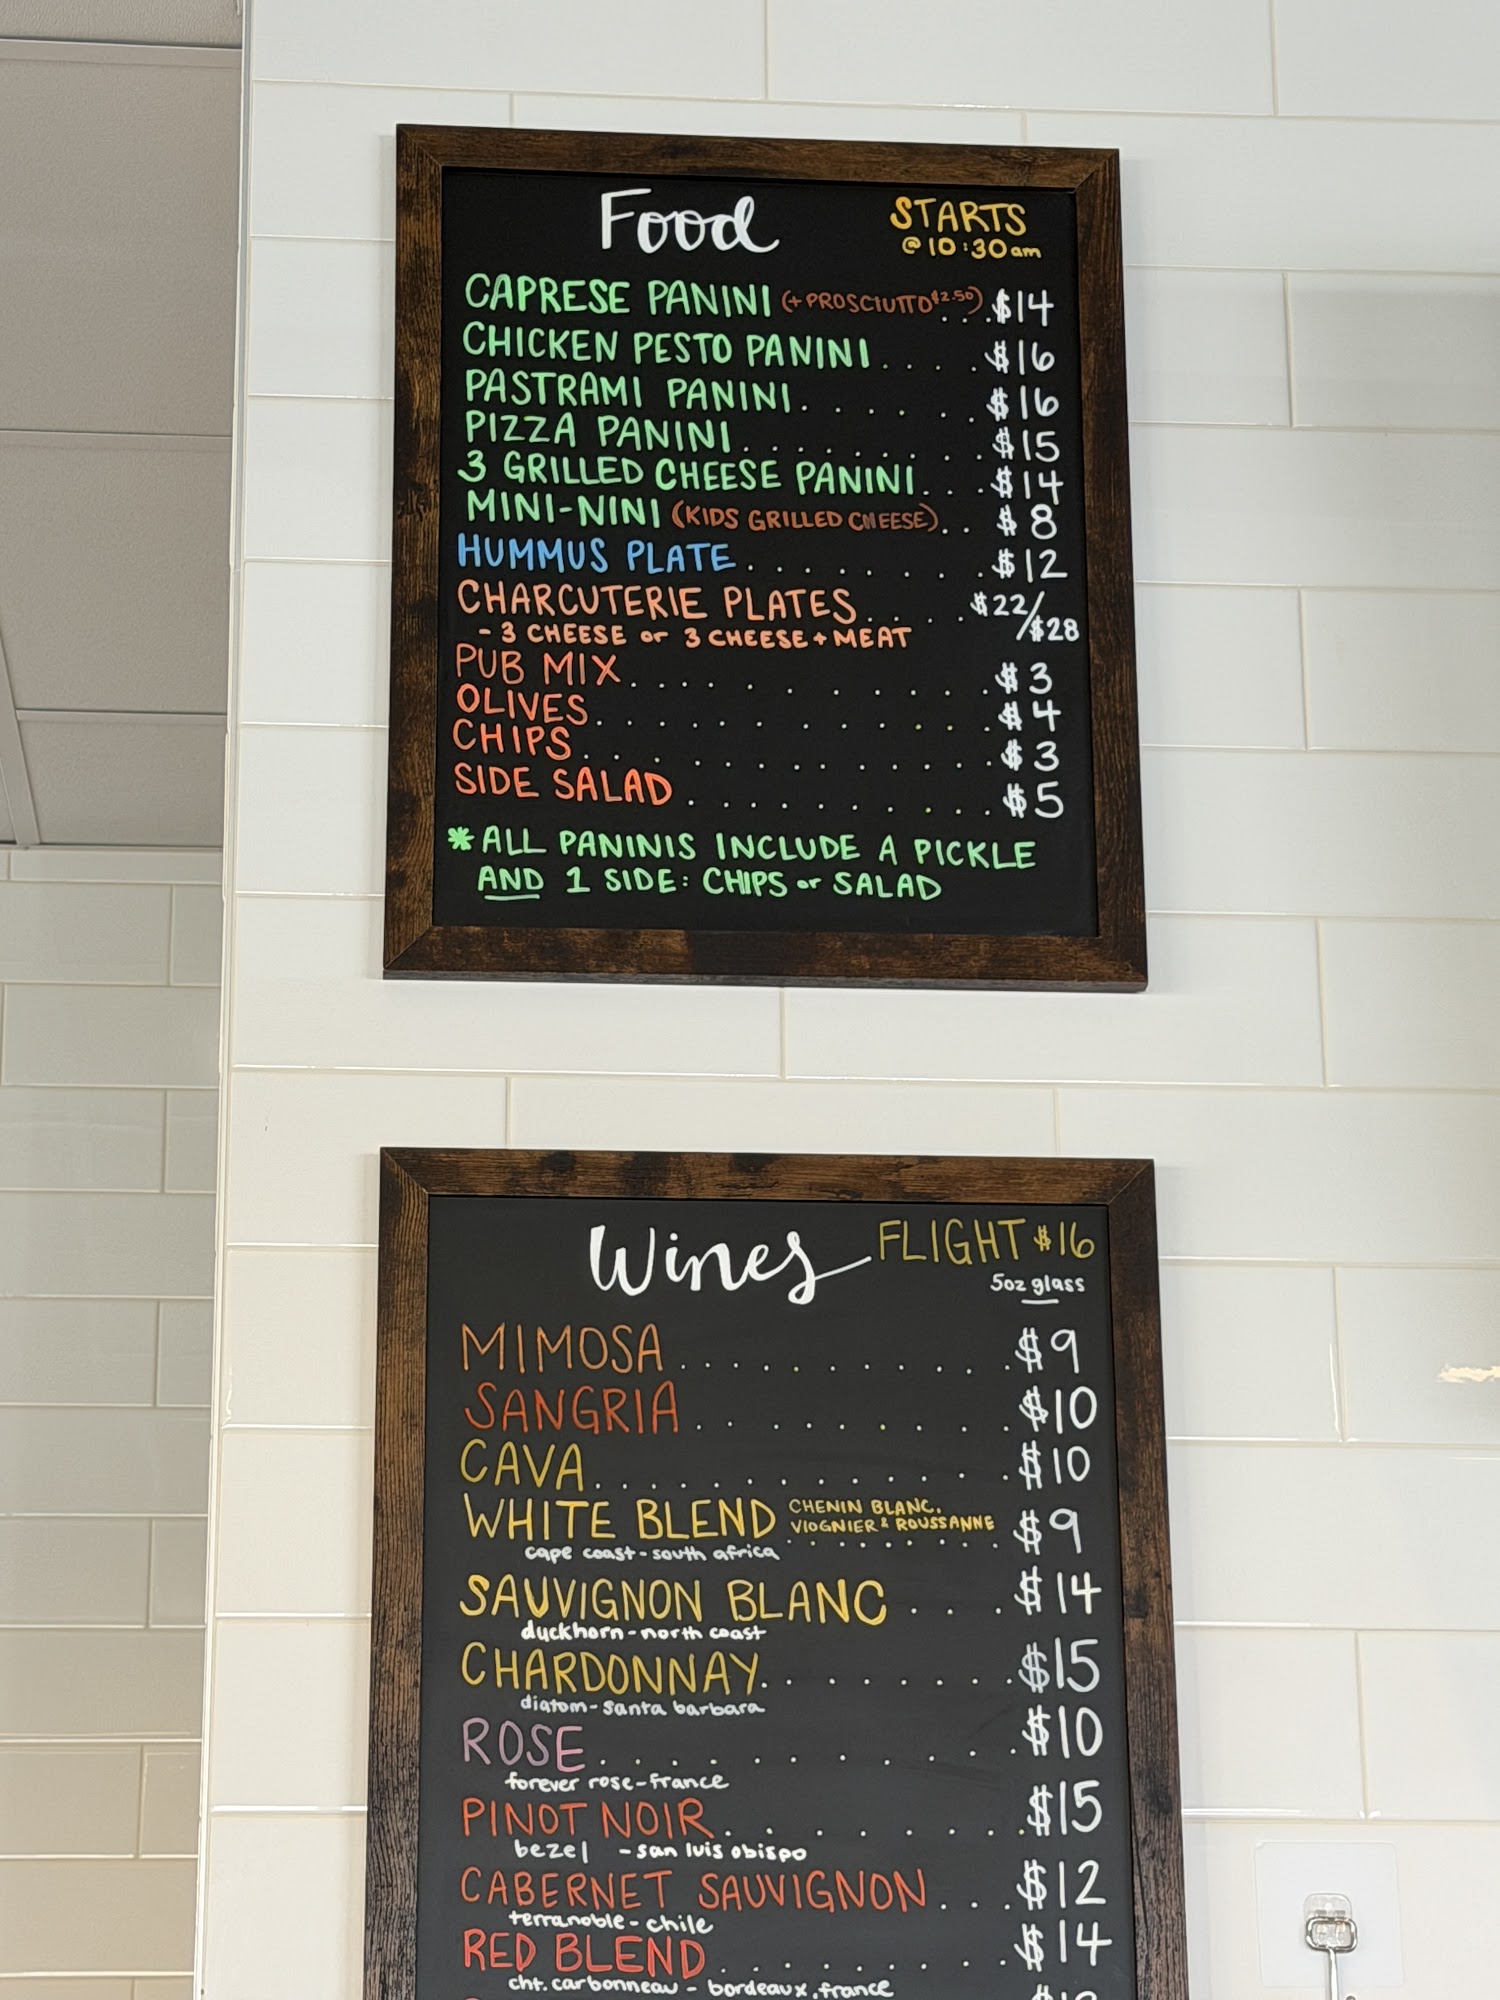 Food
STARTS
@ 10:30am
CAPRESE PANINI (+ PROSCIUTTO $2.50) . . . $14
CHICKEN PESTO PANINI . . . . . $16
PASTRAMI PANINI . . . . . . . $16
PIZZA PANINI . . . . . . . . $15
3 GRILLED CHEESE PANINI . . . $14
MINI-NINI (KIDS GRILLED CHEESE) . . $8
HUMMUS PLATE . . . . . . . . $12
CHARCUTERIE PLATES . . . . $22/$28
- 3 CHEESE or 3 CHEESE + MEAT
PUB MIX . . . . . . . . . . . $3
OLIVES . . . . . . . . . . . . $4
CHIPS . . . . . . . . . . . . $3
SIDE SALAD . . . . . . . . . . $5
* ALL PANINIS INCLUDE A PICKLE
AND 1 SIDE: CHIPS or SALAD
Wines FLIGHT $16
5oz glass
MIMOSA . . . . . . . . . . $9
SANGRIA . . . . . . . . . $10
CAVA . . . . . . . . . . . . $10
WHITE BLEND CHENIN BLANC, VIOGNIER & ROUSSANNE . . . . . . . . $9
cape coast - south africa
SAUVIGNON BLANC . . . . $14
duckhorn - north coast
CHARDONNAY . . . . . . . . $15
diatom - santa barbara
ROSE . . . . . . . . . . . $10
forever rose - france
PINOT NOIR . . . . . . . . $15
bezel - san luis obispo
CABERNET SAUVIGNON . . . $12
terranoble - chile
RED BLEND . . . . . . . . . $14
cht. carbonneau - bordeaux, france